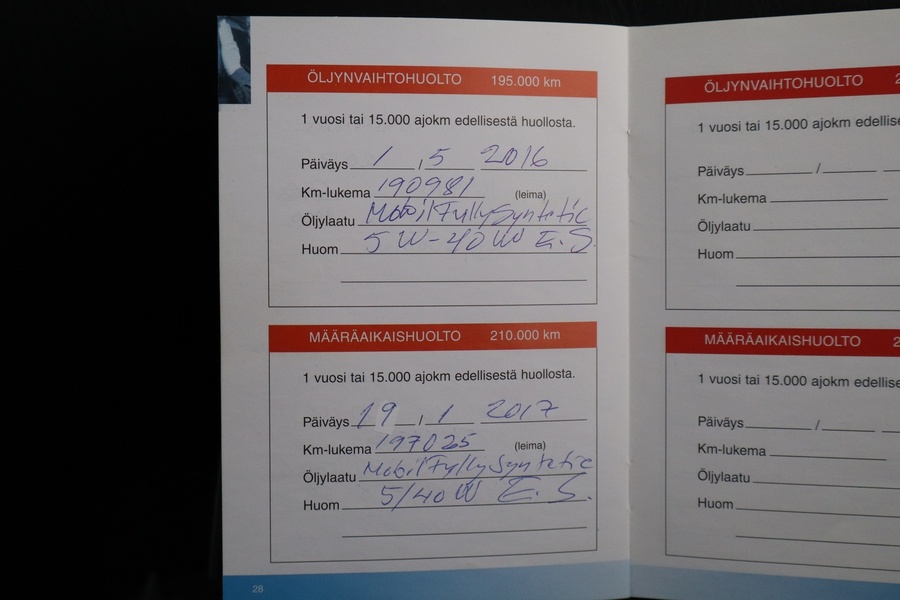 ÖLJYNVAIHTOHUOLTO 195.000 km
1 vuosi tai 15.000 ajokm edellisestä huollosta.
Päiväys 1 / 5 2016
Km-lukema 190981 (leima)
Öljylaatu Mobil Fylly Syntetic
Huom 5W-40W E.S.
MÄÄRÄAIKAISHUOLTO 210.000 km
1 vuosi tai 15.000 ajokm edellisestä huollosta.
Päiväys 19 / 1 2017
Km-lukema 197025 (leima)
Öljylaatu Mobil Fylly Syntetic
Huom 5/40W E.S.
28
ÖLJYNVAIHTOHUOLTO 2
1 vuosi tai 15.000 ajokm edellise
Päiväys /
Km-lukema
Öljylaatu
Huom
MÄÄRÄAIKAISHUOLTO 2
1 vuosi tai 15.000 ajokm edellise
Päiväys /
Km-lukema
Öljylaatu
Huom